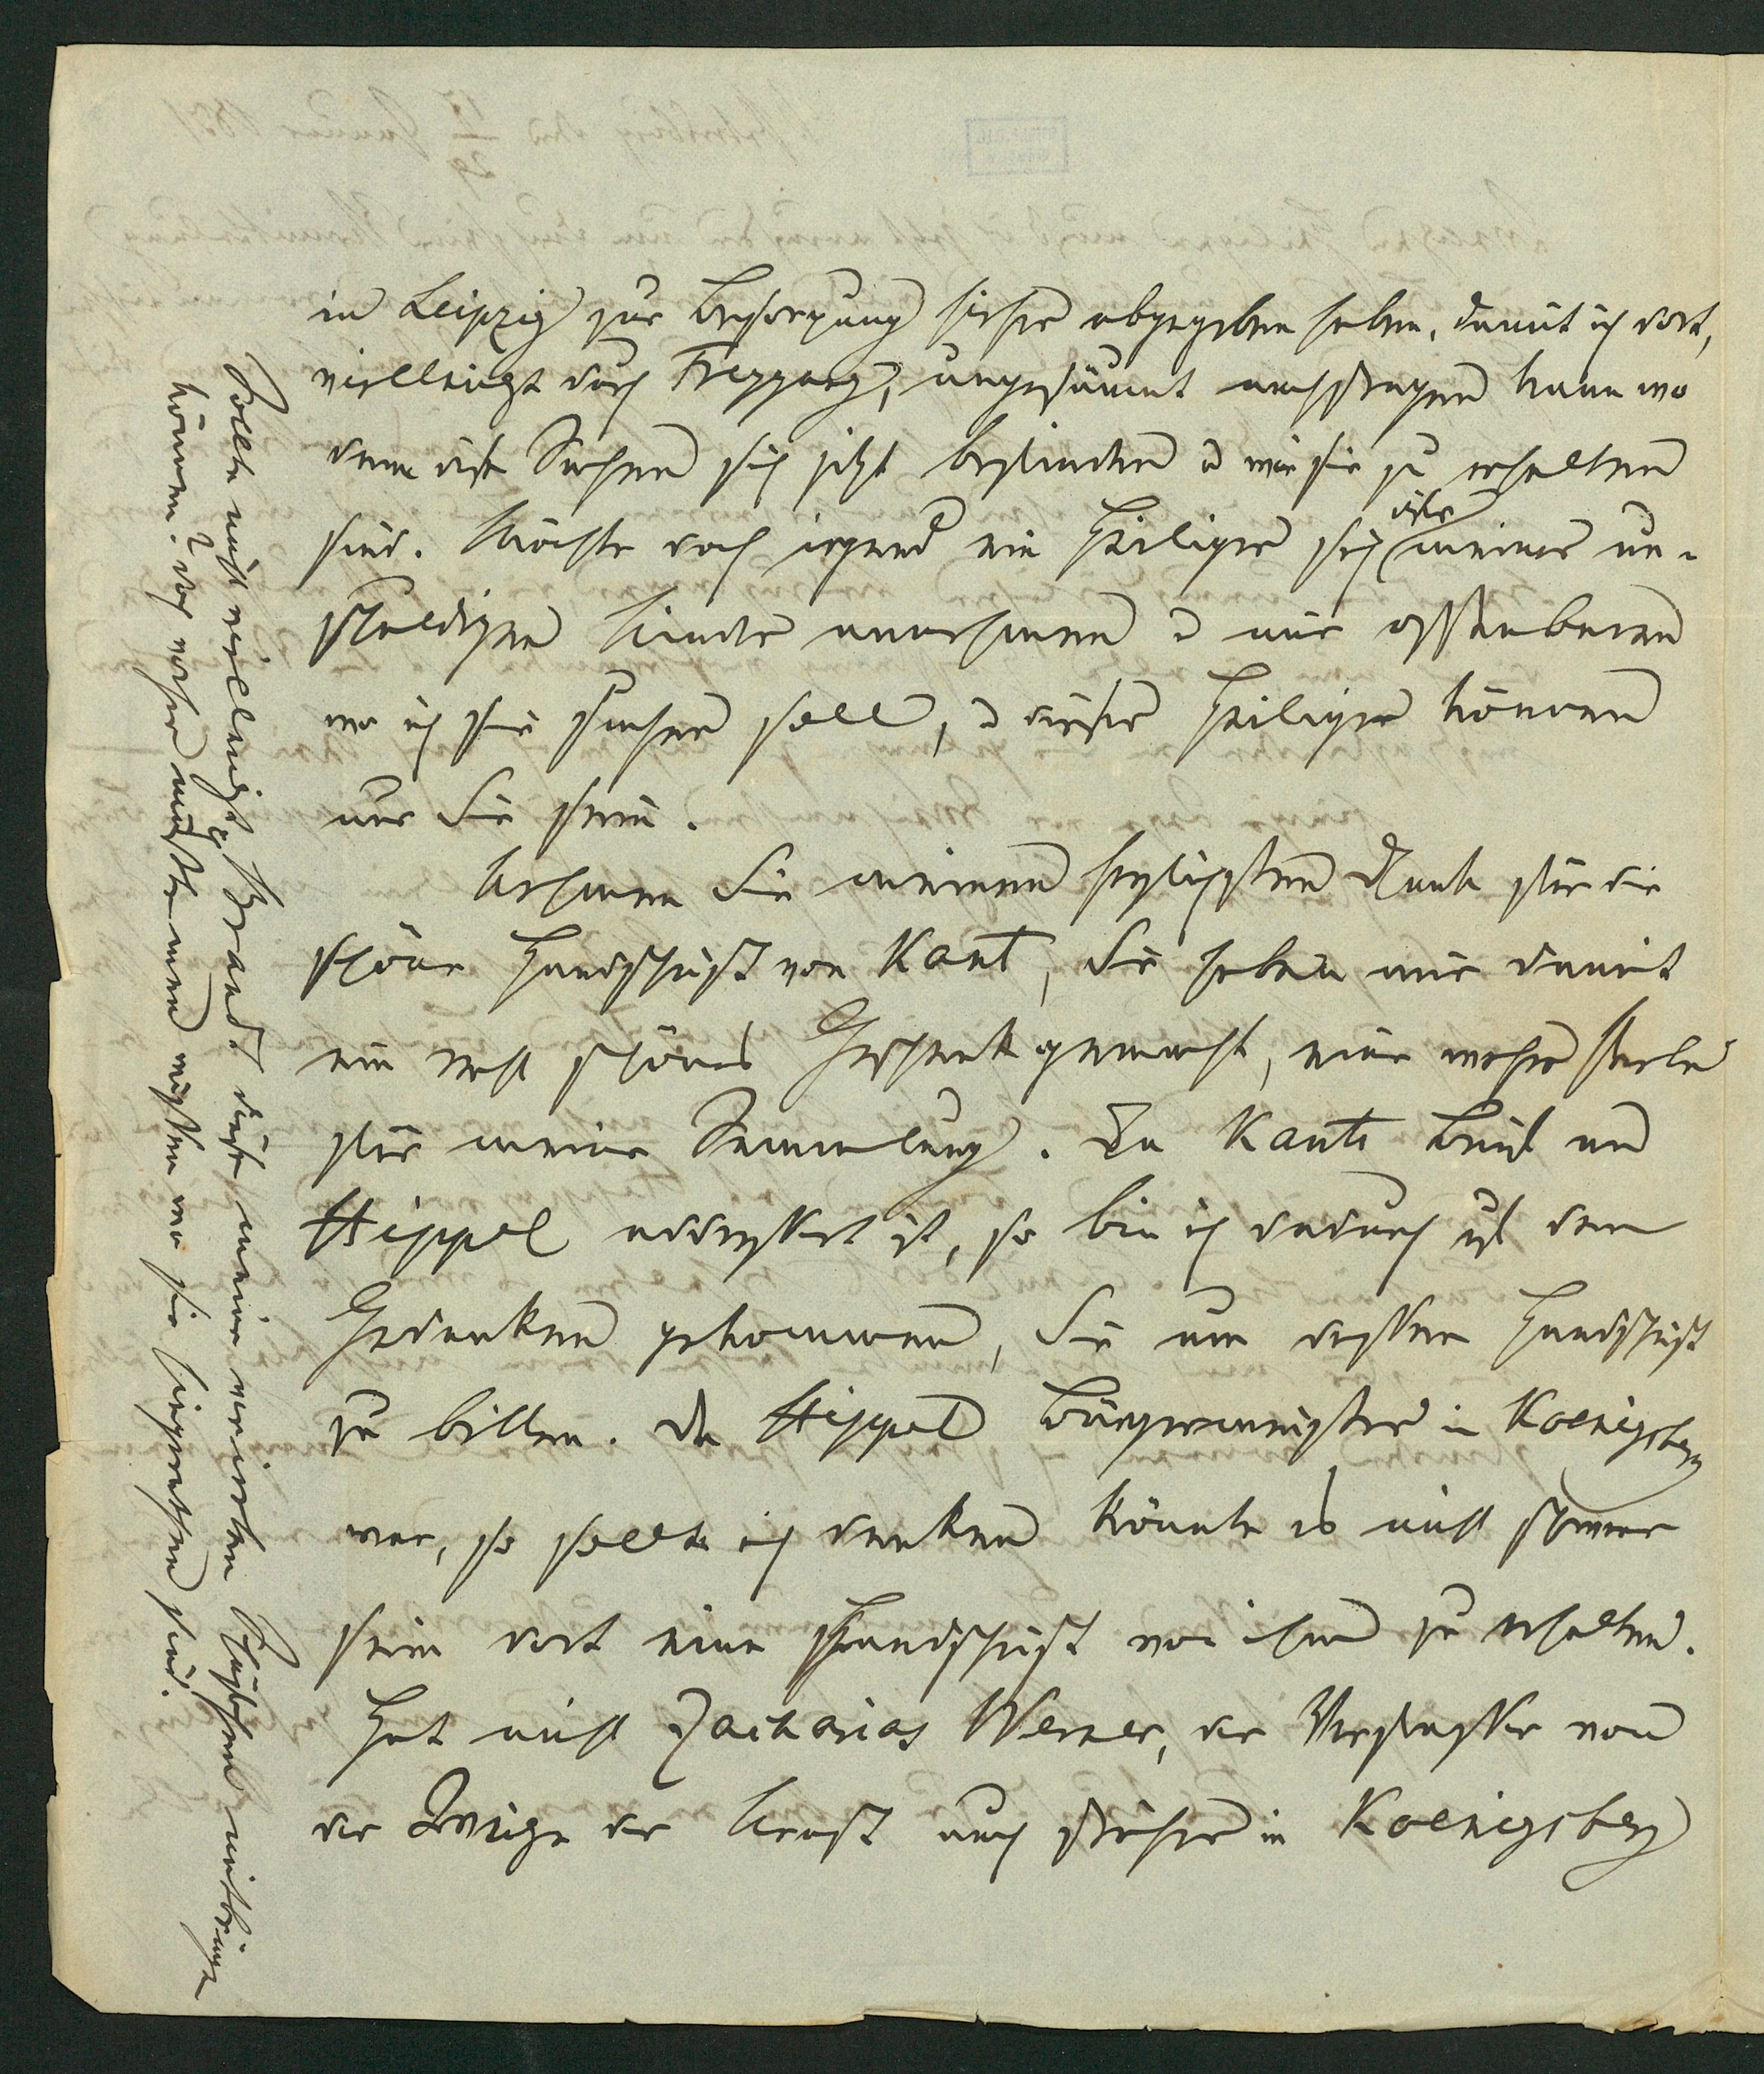 in Leipzig zur Besorgung hieher abgegeben haben, damit ich dort,
vielleicht durch Freygang, ungesäumt nachfragen kann wo
denn diese Sachen sich jetzt befinden u wie sie zu erhalten
sind. Möchte doch irgend ein Heiliger sich dieser meiner un-
schuldigen Kinder annehmen u mir offenbaren
wo ich sie suchen soll, u dieser Heilige können
nur Sie sein.
Nehmen Sie meinen herzlichsten Dank für die
schöne Handschrift von Kant, Sie haben mir damit
ein recht schönes Geschenk gemacht, eine wahre Perle
für meine Sammlung. Da Kants Brief an
Hippel addressirt ist, so bin ich dadurch auf den
Gedanken gekommen, Sie um dessen Handschrift
zu bitten. Da Hippel Bürgermeister in Koenigsberg
war, so sollte ich denken könnte es nicht schwer
sein dort eine Handschrift von ihm zu erhalten.
Hat nicht Zacharias Werner, der Verfasser von
der Weihe der Kraft auch früher in Koenigsberg
Sollte nicht vielleicht H Brandt diese meine verirrten Schäfchen mitbringen
können? doch vorher müssten wir wissen wo sie hingerathen sind.